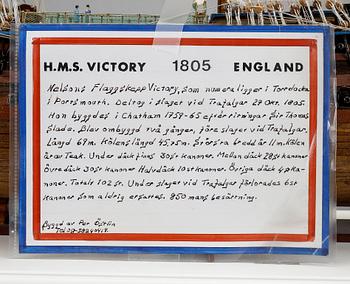 H.M.S. VICTORY 1805 ENGLAND
Nelsons Flaggskepp Victory, som numera ligger i Torrdocka
i Portsmouth. Deltog i slaget vid Trafalgar 21 Okt. 1805.
Hon byggdes i Chatham 1759-65 efter ritningar Sir Thomas
Slade. Blev ombyggd två gånger, före slaget vid Trafalgar.
Längd 67m. Kölens längd 45,75m. Största bredd är 11m. Kölen
är av Teak. Under däck finns 30st kanoner. Mellan däck 28st kanoner
Övre däck 30st kanoner Halvdäck 10st kanoner. Övriga däck 4
noner. Totalt 102 st. Under slaget vid Trafalgar förlorades 6st
kanoner som aldrig ersattes. 850 mans besättning.
Byggd av Per Östlin